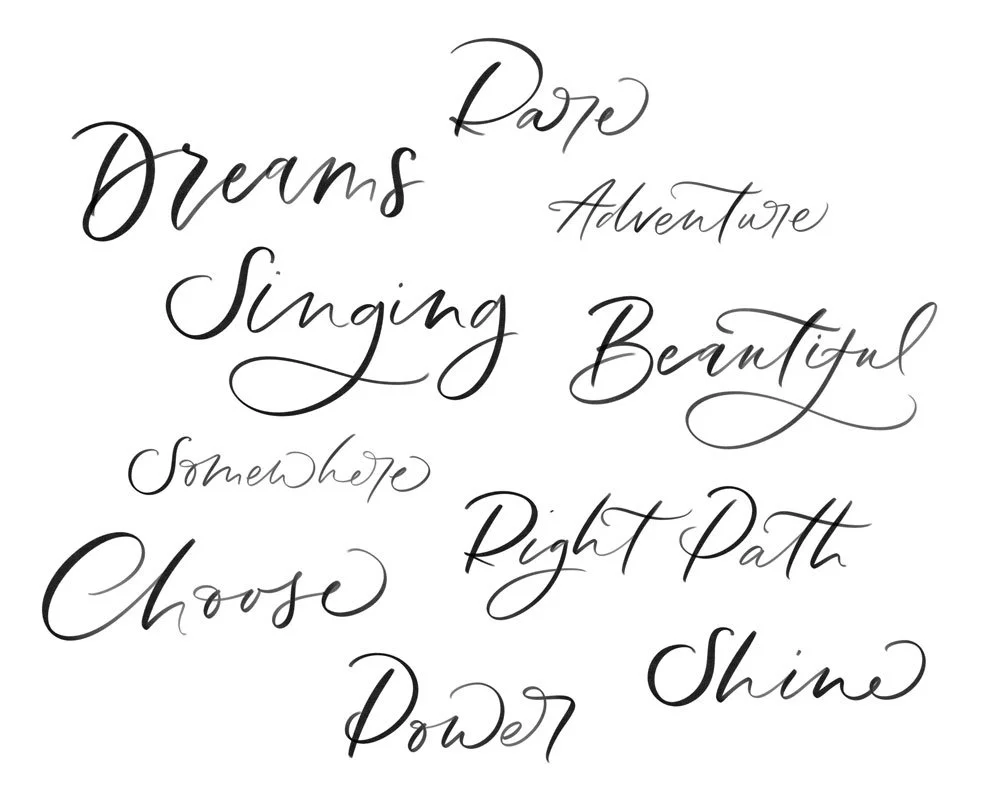 Rare
Dreams
Adventure
Singing
Beautiful
Somewhere
Right Path
Choose
Shine
Power